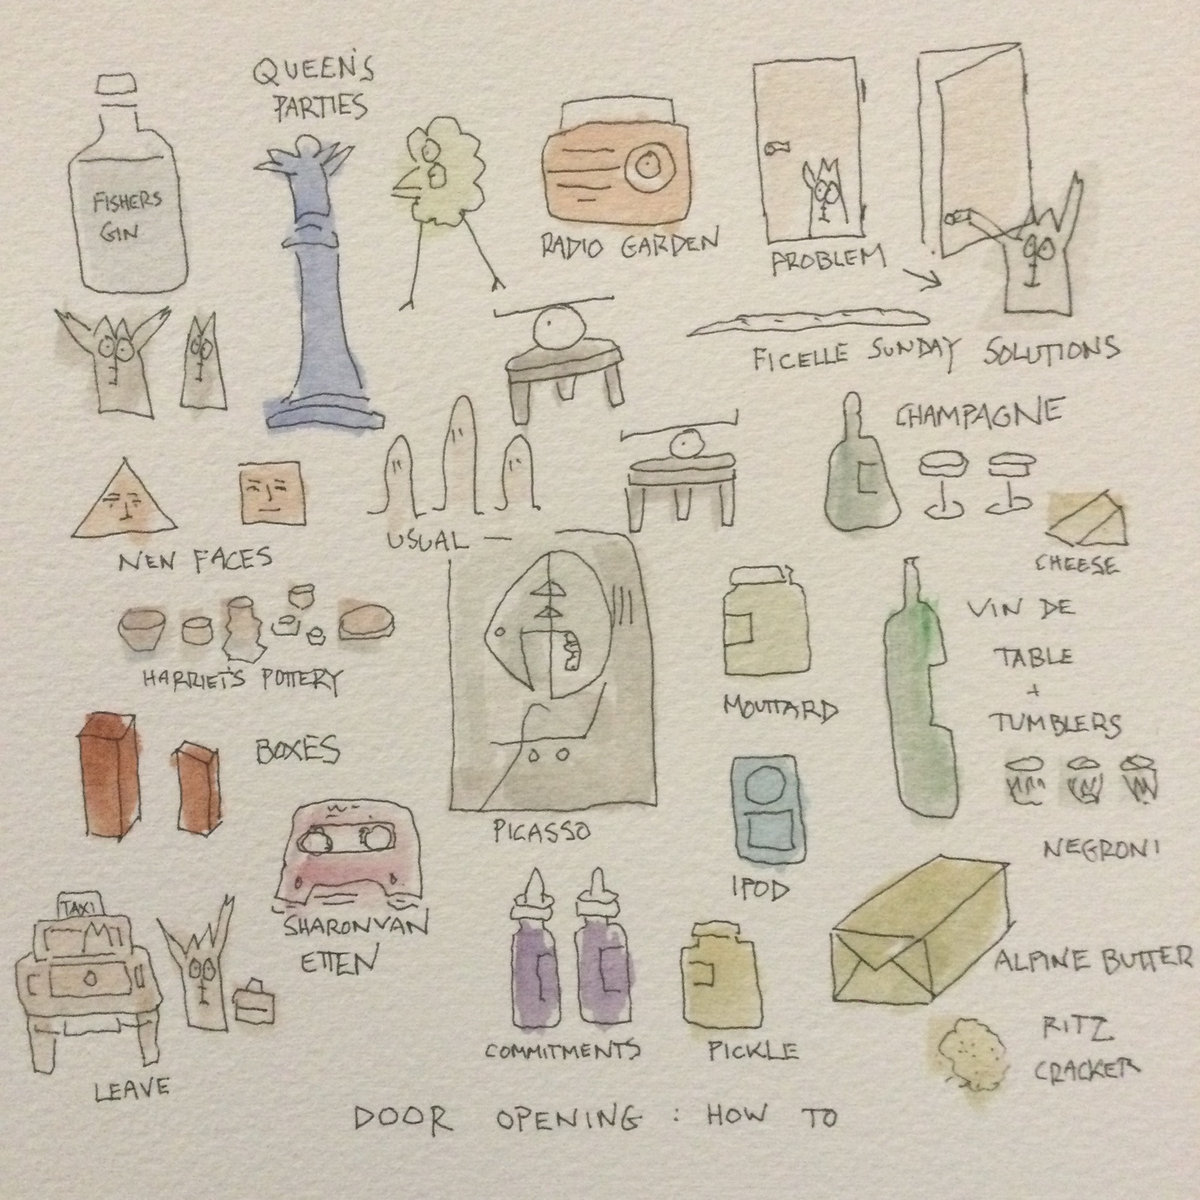 QUEEN'S
PARTIES
FISHERS
GIN
RADIO GARDEN
PROBLEM
FICELLE SUNDAY SOLUTIONS
CHAMPAGNE
CHEESE
NEN FACES
USUAL —
VIN DE
TABLE
+
TUMBLERS
HARRIET'S POTTERY
MOUTTARD
BOXES
PICASSO
NEGRONI
IPOD
TAXI
SHARON VAN
ETTEN
ALPINE BUTTER
COMMITMENTS
PICKLE
RITZ
CRACKER
LEAVE
DOOR OPENING : HOW TO